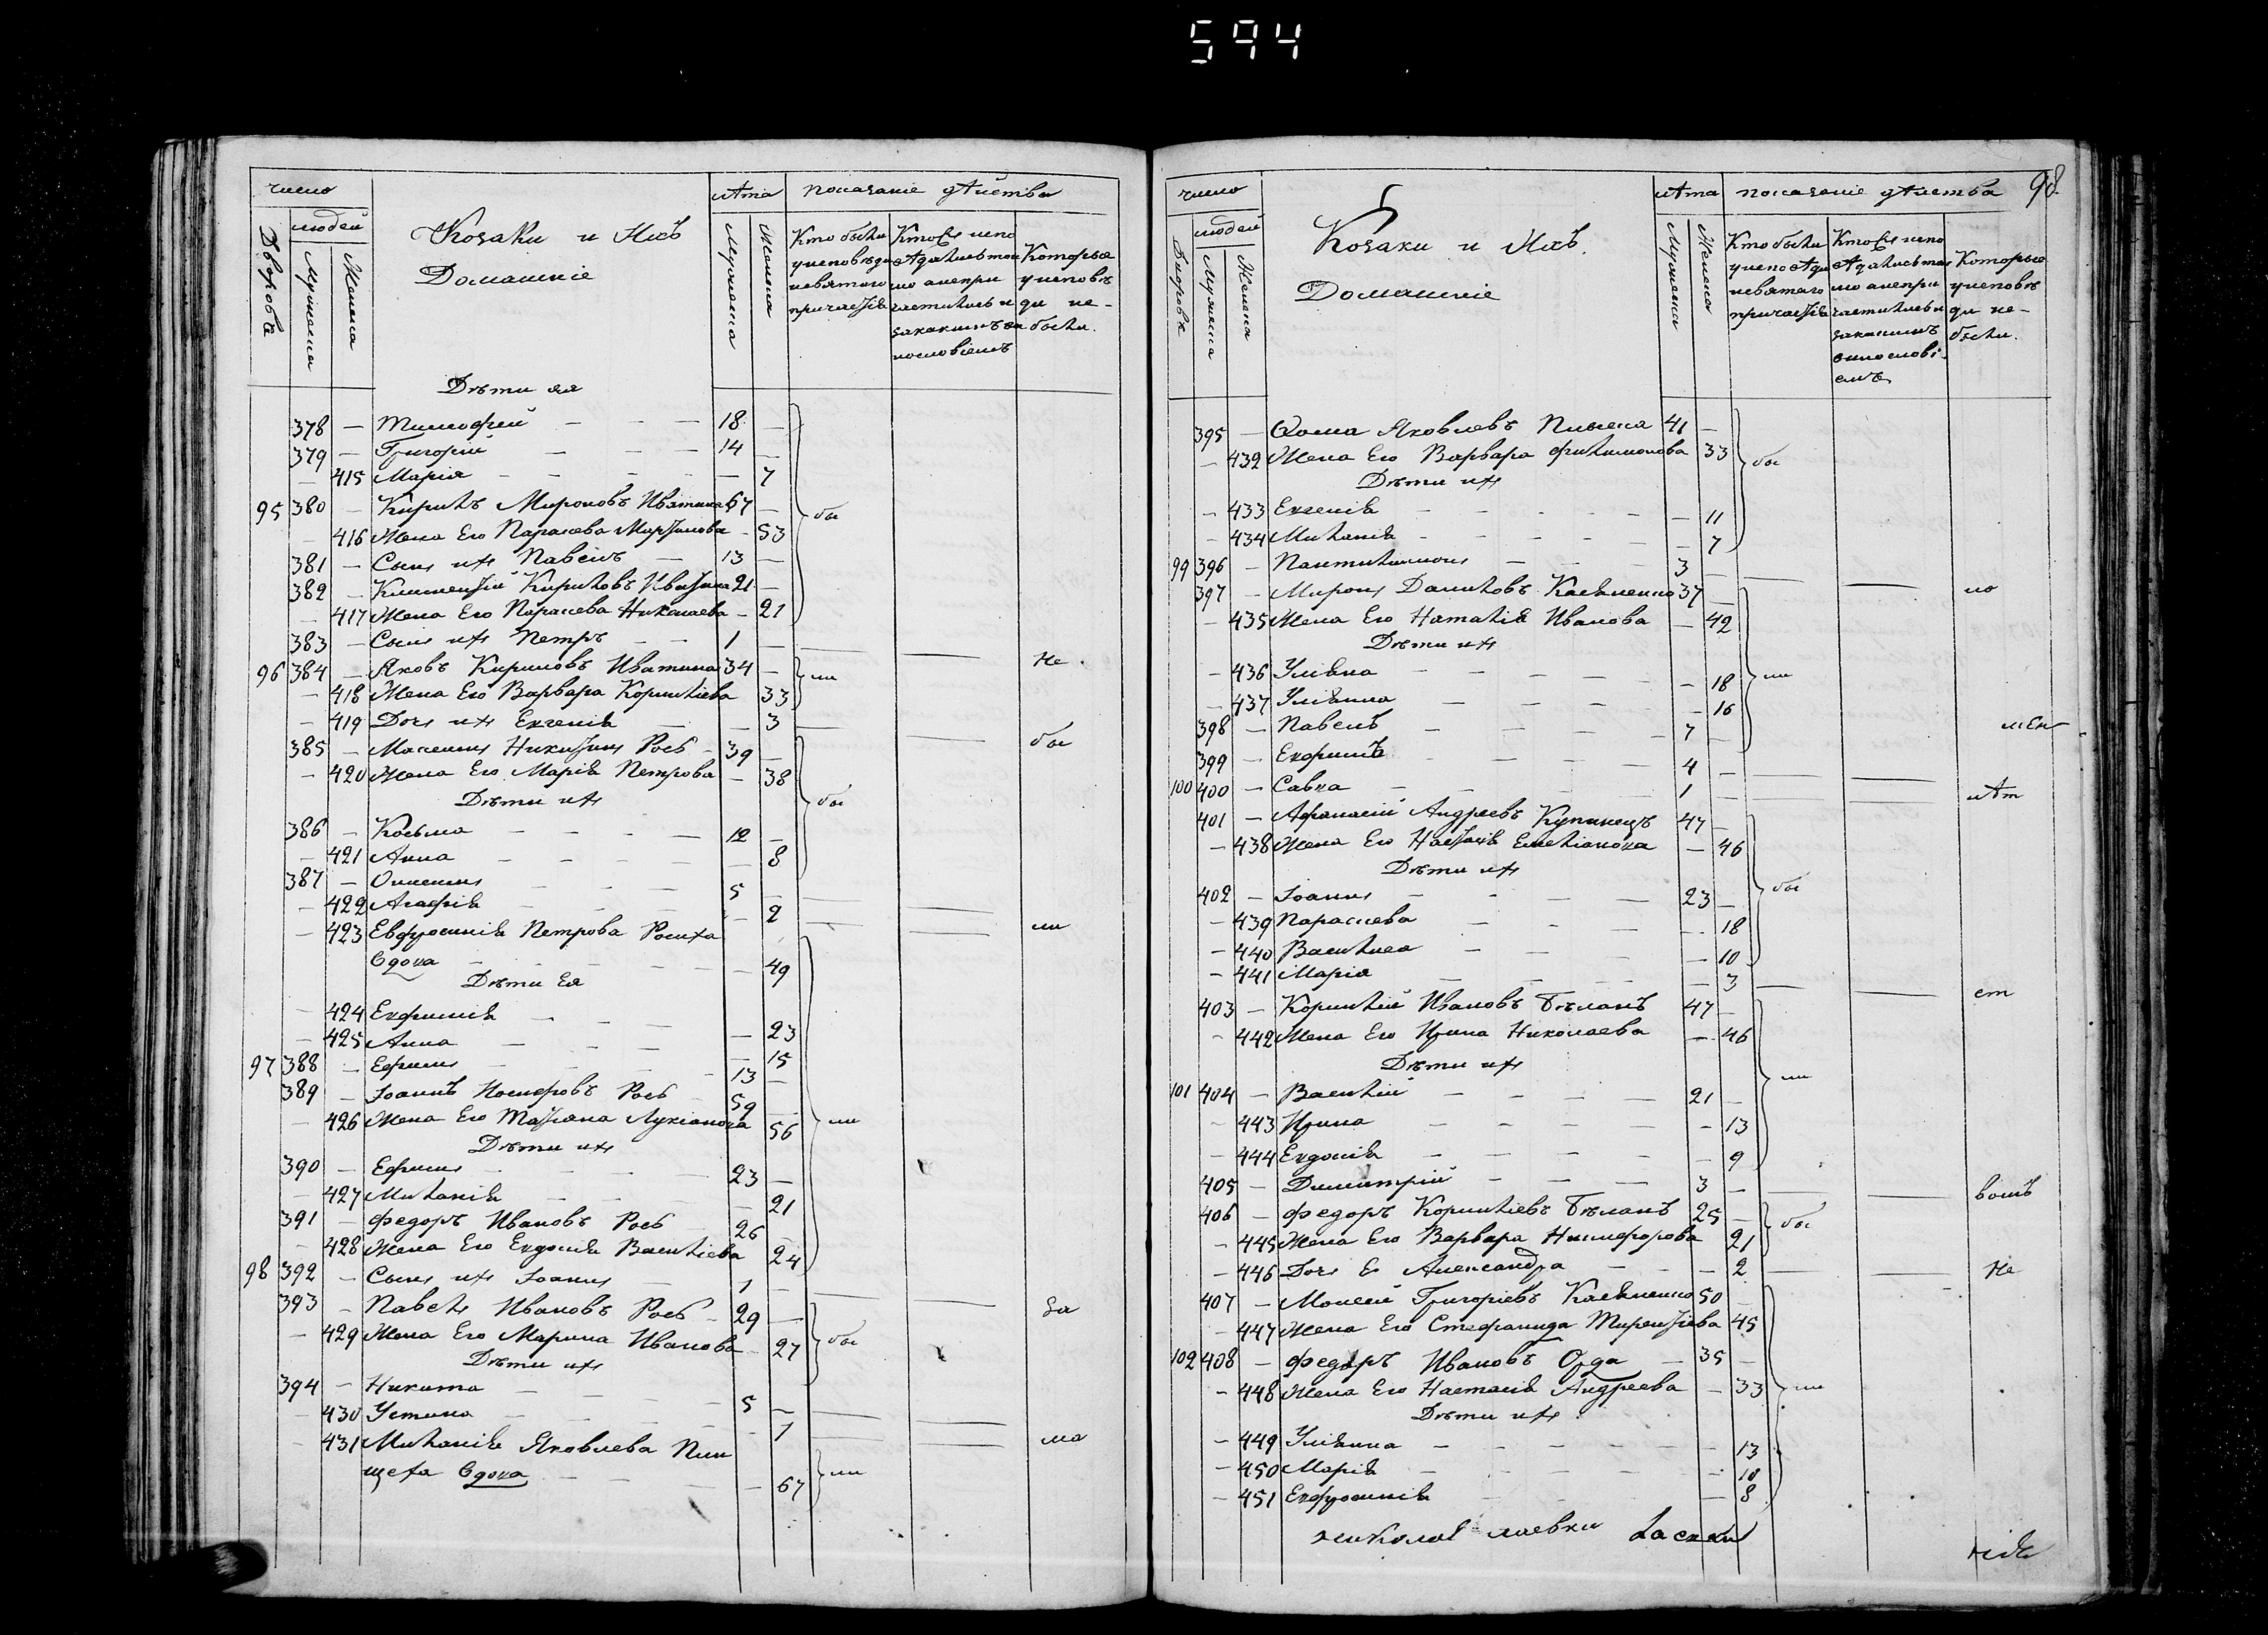 594
число
людей
Дворовъ
Мужеска
Женска
Козаки и Ихъ
Домашніе
лѣта
Мужеска
Женска
показаніе дѣйства
Кто были
у исповѣди
и святаго
причастія
Кто
исповѣдались
Которые
у исповѣ
ди не-
были.
Дѣти ея
378 — Тимофей — — — 18 —
379 — Григорій — — — 14 —
— 415 Марія — — — — 7
95 380 — Кирилъ Мироновъ 67 —
— 416 Жена Его Параскева — 53
381 — Сынъ ихъ Павелъ — 13 —
382 — Климентій Кириловъ 21 —
— 417 Жена Его Параскева Николаева — 21
383 — Сынъ ихъ Петръ — — 1 —
96 384 — Яковъ Кириловъ 34 —
Не
— 418 Жена Его Варвара Корниліева 33
— 419 Дочь ихъ Евгенія — — 3
385 — Максимъ Никитинъ Росъ — 39 —
бы
— 420 Жена Его Марія Петрова — 38
Дѣти ихъ
бы
386 — Косьма — — — 12 —
— 421 Анна — — — — 8
387 — Онисимъ — — — 5 —
— 422 Агафія — — — — 2
— 423 Евфросинія Петрова Росиха
ли
вдова — — — — 49
Дѣти Ея
— 424 Евфимія — — — — 23
— 425 Анна — — — — 15
97 388 — Ефимъ — — — 13 —
389 — Іоаннъ Никифоровъ Росъ — 59 —
— 426 Жена Его Татіана Лукіанова 56
Дѣти ихъ
390 — Ефимъ — — — 23 —
— 427 Миланія — — — 21
391 — Федоръ Ивановъ Росъ — 26
— 428 Жена Его Евдокія Василіева 24
98 392 — Сынъ ихъ Іоаннъ — 1 —
393 — Павелъ Ивановъ Росъ — 29 —
за
— 429 Жена Его Марина Иванова — 27
бы
Дѣти ихъ
394 — Никита — — — 5 —
— 430 Устина — — — — 1
— 431 Миланія Яковлева Пи
ма
щеха вдова — — — 67
ли
98.
число
людей
Дворовъ
Мужеска
Женска
Козаки и Ихъ.
Домашніе
лѣта
Мужеска
Женска
показаніе дѣйства
Кто были
у исповѣди
и святаго
причастія
Которые
у исповѣ
ди не-
были.
395 — Фома Яковлевъ 41 —
— 432 Жена Его Варвара Филимонова 33
бы
Дѣти ихъ
— 433 Евгенія — — — — 11
— 434 Миланія — — — — 7
99 396 — Пантилимонъ — — 3 —
397 — Миронъ Даниловъ Касяненко 37 —
по
— 435 Жена Его Наталія Иванова — 42
Дѣти ихъ
— 436 Уліяна — — — — 18
ли
— 437 Уліянна — — — — 16
398 — Павелъ — — — 7 —
399 — Ефимъ — — — 4 —
100 400 — Савка — — — 1 —
401 — Афанасій Андреевъ 47 —
— 438 Жена Его Настасія Емеліанова — 46
Дѣти ихъ
402 — Іоаннъ — — — 23 —
бы
— 439 Параскева — — — 18
— 440 Василиса — — — 10
— 441 Марія — — — 3
403 — Корнилій Ивановъ Бѣланъ 47 —
ст
— 442 Жена Его Ирина Николаева — 46
Дѣти ихъ
101 404 — Василій — — — 21 —
ли
— 443 Ирина — — — — 13
— 444 Евдокія — — — — 9
405 — Димитрій — — — 3 —
406 — Федоръ Корниліевъ Бѣланъ 25 —
бы
— 445 Жена Его Варвара Никифорова 21
— 446 Дочь Ея Александра — — 2
Не
407 — Моисей Григоріевъ Касяненко 50 —
— 447 Жена Его Стефанида Терентіева 45
102 408 — Федоръ Ивановъ Орда — 35 —
— 448 Жена Его Настасія Андреева — 33
ли
Дѣти ихъ
— 449 Уліянна — — — — 13
— 450 Марія — — — — 10
— 451 Евфросинія — — — 8